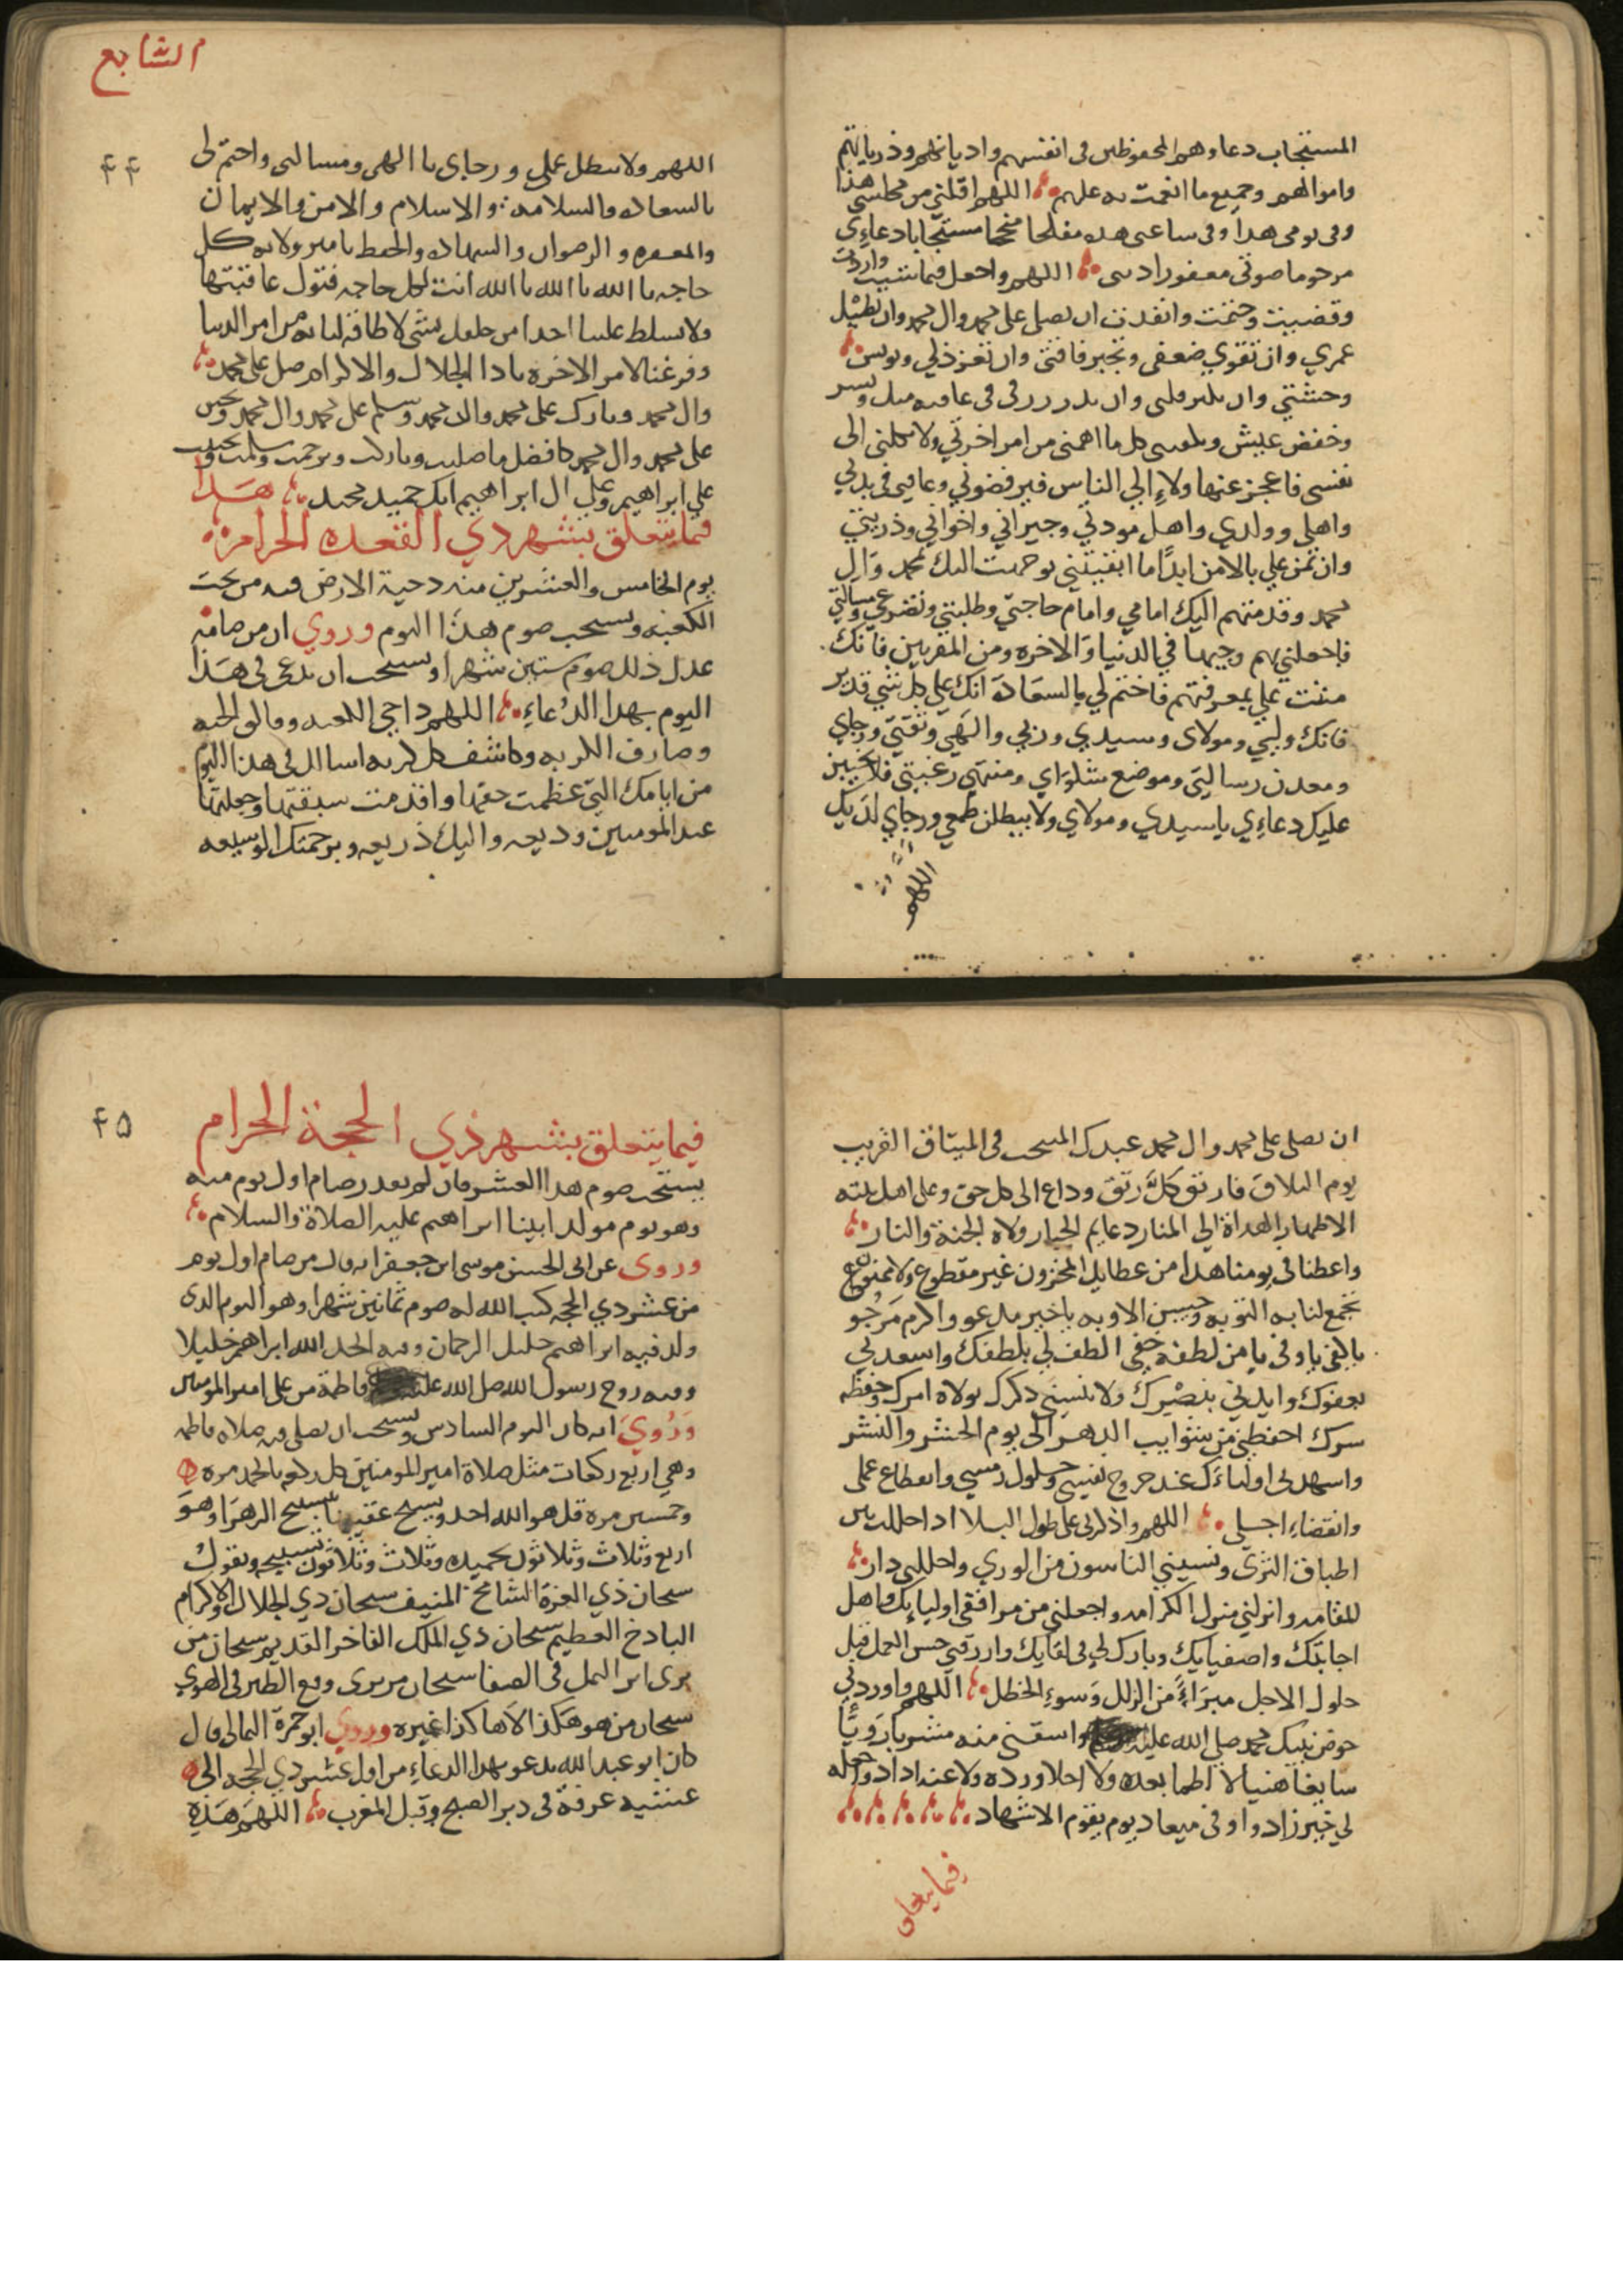 المستجاب دعاوهم المحفوظين في انفسهم واديانهم وذرياتهم
واموالهم وجميع ما انعمت به عليهم اللهم اقلبني من مجلسي هذا
وفي يومي هذا وفي ساعتي هذه مفلحا منجحا مستجابا دعاءي
مرحوما صوتي مغفورا ذنبي اللهم واجعل فيما شيت واردت
وقضيت وحتمت وانفذت ان تصلي على محمد وال محمد وان تطيل
عمري وان تقوي ضعفي وتجبر فاقتي وان تعز ذلي وتونس
وحشتي وان تكثر قلتي وان تدر رزقي في عافيه ويسر
وخفض عيش وتكفيني كل ما اهمني من امر اخرتي ولا تكلني الى
نفسي فاعجز عنها ولا الي الناس فيرفضوني وعافني في بدني
واهلي وولدي واهل مودتي وجيراني واخواني وذريتي
وان تمن علي بالامن ابدا ما ابقيتني توجهت اليك بمحمد وال
محمد وقدمتهم اليك امامي وامام حاجتي وطلبتي وتضرعي ومسالتي
فاجعلني بهم وجيها في الدنيا والاخره ومن المقربين فانك
مننت علي بمعرفتهم فاختم لي بالسعادة انك علي كل شي قدير
فانك وليي ومولاي وسيدي وربي والهي وثقتي ورجاي
ومعدن رسالتي وموضع شكواي ومنتهي رغبتي فلا يخيبن
عليك دعاءي يا سيدي ومولاي ولا يبطلن طمعي ورجاي لديك
اللهم
الشابع
۴۴
اللهم ولا تبطل عملي ورجاي يا الهي ومسالتي واختم لي
بالسعاده والسلامه والاسلام والامن والايمان
والمغفره والرضوان والشهاده والحفظ يا منزولا به كل
حاجه يا الله يا الله يا الله انت لكل حاجه فتول عاقبتها
ولا تسلط علينا احدا من خلقك بشي لا طاقة لنا به من امر الدنيا
وفرغنا لامر الاخره يا ذا الجلال والاكرام صل علي محمد
وال محمد وبارك على محمد وال محمد وسلم على محمد وال محمد وتحنن
على محمد وال محمد كافضل ما صليت وباركت وترحمت وسلمت وتحننت
علي ابراهيم وعلي ال ابراهيم انك حميد مجيد هذا
فيما يتعلق بشهر ذي القعده الحرام
يوم الخامس والعشرين منه دحية الارض فيه من تحت
الكعبه ويستحب صوم هذا اليوم وروي ان من صامه
عدل ذلك صوم ستين شهرا ويستحب ان يدعى في هذا
اليوم بهذا الدعاء اللهم داحي الكعبه وفالق الحبه
وصارف الكربه وكاشف كل كربه اسالك في هذا اليوم
من ايامك التي عظمت حقها واقدمت سبقتها وجعلتها
عند المومنين وديعه واليك ذريعه وبرحمتك الوسيعه
ان تصلي على محمد وال محمد عبدك المنتجب في الميثاق القريب
يوم التلاق فاتق كل رتق وداع الى كل حق وعلى اهل بيته
الاطهار الهداة الي المنار دعايم الجبار ولاه الجنة والنار
واعطنا في يومنا هذا من عطايك المخزون غير مقطوع ولا ممنوع
تجمع لنا به التوبه وحسن الاوبه يا خير مدعو واكرم مرجو
يا كفي يا وفي يا من لطفه خفي الطف لي بلطفك واسعدني
بعفوك وايدني بنصرك ولا تنسني ذكرك بولاه امرك وحفظه
سرك احفظني من شوايب الدهر الى يوم الحشر والنشر
واشهدني اولياءك عند خروج نفسي وحلول رمسي وانقطاع عملي
وانقضاء اجلي اللهم واذكرني على طول البلا اذا حللت بين
اطباق الثرى ونسيني الناسون من الوري واحللني دار
المقامه وانزلني منزل الكرامه واجعلني من مرافقي اوليايك واهل
اجابتك واصفيايك وبارك لي في لقايك وارزقني حسن العمل قبل
حلول الاجل مبراء من الزلل وسوء الخطل اللهم واوردني
حوض نبيك محمد صلي الله عليه واسقني منه مشربا رويا
سايغا هنيا لا اظما بعده ولا احلا ورده ولا عنه اذاد واجعله
لي خير زاد واوفى ميعاد يوم يقوم الاشهاد
فيما يتعلق
۴۵
فيما يتعلق بشهر ذي الحجة الحرام
يستحب صوم هذا العشر فان لم يقدر صام اول يوم منه
وهو يوم مولد ابينا ابراهيم عليه الصلاة والسلام
وروى عن ابي الحسن موسى ابن جعفر انه قال من صام اول يوم
من عشر ذي الحجه كتب الله له صوم ثمانين شهرا وهو اليوم الذي
ولد فيه ابراهيم خليل الرحمان وفيه اتخذ الله ابراهيم خليلا
وفيه زوج رسول الله صلى الله عليه فاطمة من علي امير المومنين
وروي انه كان اليوم السادس ويستحب ان يصلي فيه صلاه فاطمه
وهي اربع ركعات مثل صلاة امير المومنين كل ركعه بالحمد مره
وخمسين مره قل هو الله احد ويسبح عقيبها تسبيح الزهرا وهو
اربع وثلاث وثلاثون تحميده وثلاث وثلاثون تسبيحه ويقول
سبحان ذي العزة الشامخ المنيف سبحان ذي الجلال والاكرام
الباذخ العظيم سبحان ذي الملك الفاخر القديم سبحان من
يرى اثر النمل في الصفا سبحان من يرى وقع الطير في الهوي
سبحان من هو هكذا لا هاكذا غيره وروي ابو حمزة الثمالي قال
كان ابو عبد الله يدعو بهذا الدعاء من اول عشر ذي الحجه الى
عشيه عرفة في دبر الصبح وقبل المغرب اللهم هذه